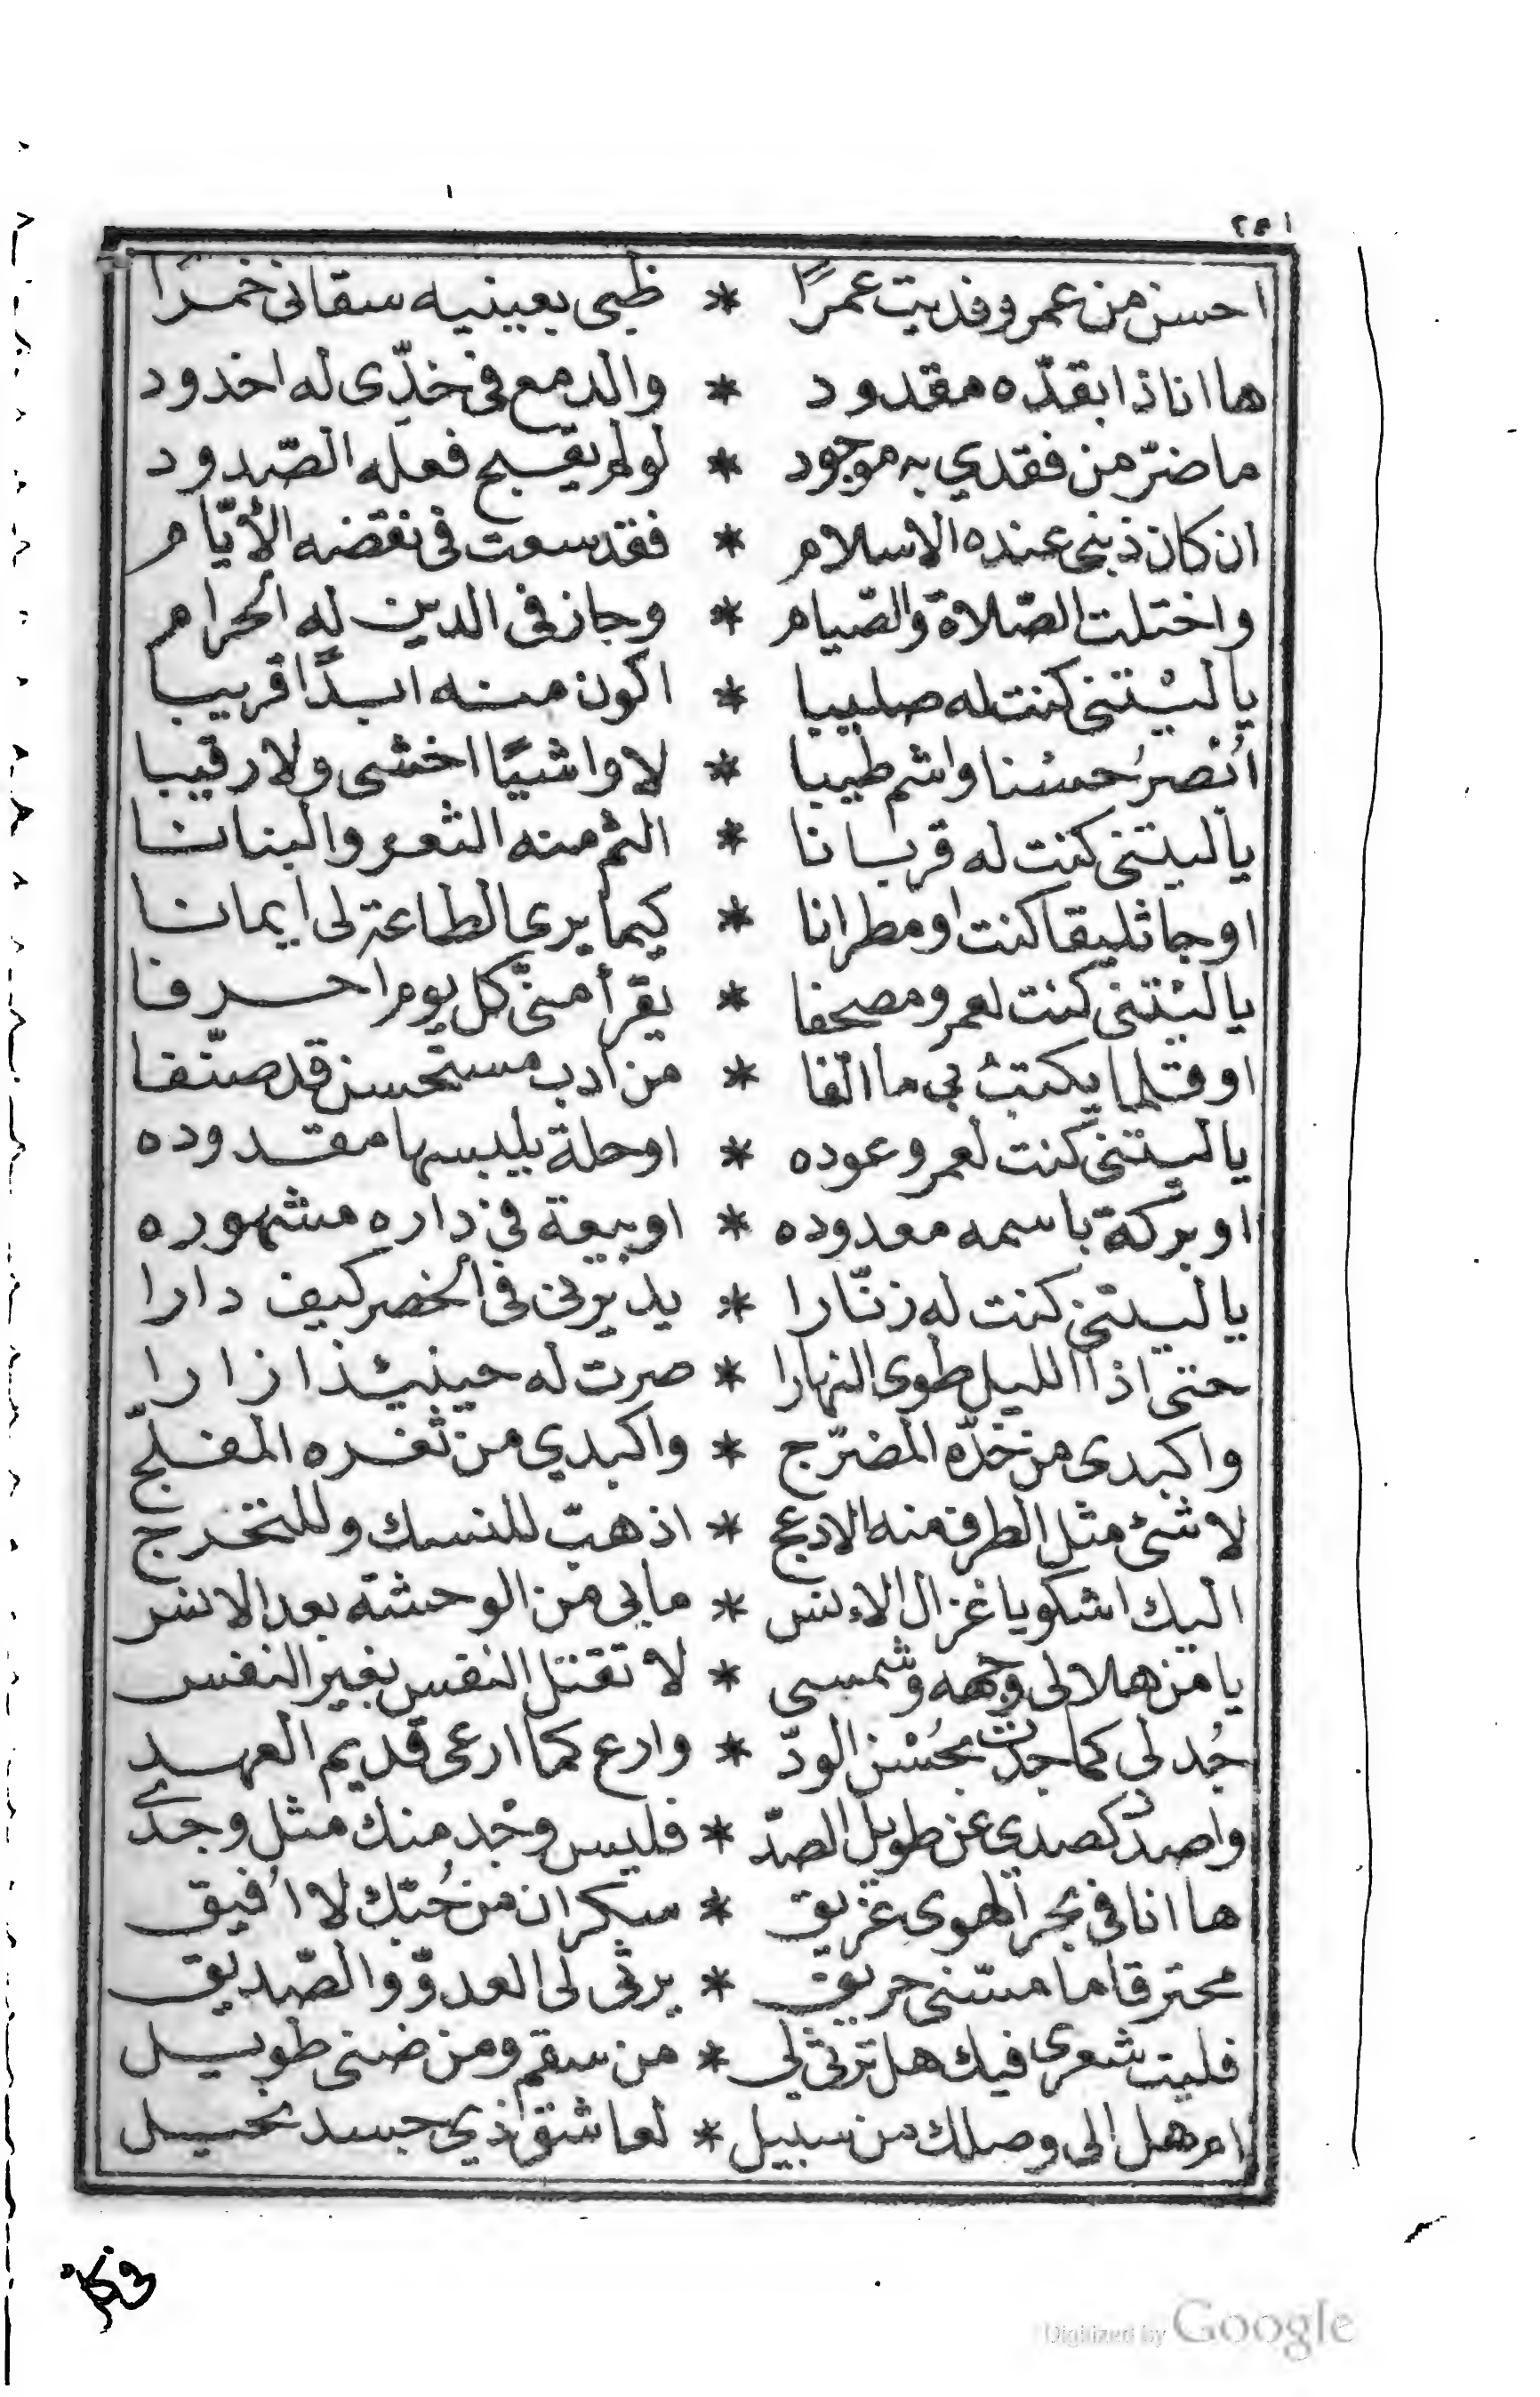 ٢٤١
احسن من عمرو فديت عمرًا * ظبى بعينيه سقانى خمرًا
ها انا ذا بقدّه مقدود * والدمع فى خدّى له اخدود
ما ضرّ من فقدي به موجود * لو لم يقبح فعله الصّدود
ان كان ذنبى عنده الاسلام * فقد سعت فى نقضه الأيّام
واختلت الصّلاة والصّيام * وجاز فى الدين له الحرام
يا ليْتنى كنت له صليبا * اكون منه ابدًا قريبا
اُبْصرُ حسْنا واشم طيبا * لا واشيًا اخشى ولا رقيبا
يا ليتنى كنت له قربانا * الثم منه الثغر والبنانا
او جاثليقا كنت او مطرانا * كيما يرى الطاعة لى ايمانا
يا ليْتنى كنت لعمرو مصحفا * يقرأ منّى كل يوم احرفا
او قلما يكتبُ بى ما الّفا * من ادب مستحسن قد صنّفا
يا ليتنى كنت لعمرو عوده * او حلة يلبسها مقدوده
او بركة باسمه معدوده * او بيعة فى داره مشهوره
يا ليتنى كنت له زنّارا * يديرنى فى الخصر كيف دارا
حتى اذا الليل طوى النهارا * صرت له حينئذا زارا
واكبدى من خدّه المضرّج * واكبدي من ثغره المفلّج
لا شئ مثل الطرف منه الادعج * اذهبّ للنسك وللتخرج
اليك اشكو يا غزال الاءنس * ما بى من الوحشة بعد الانس
يا من هلالى وجهه وشمسى * لا تقتل النفس بغير النفس
جُد لى كما جدْت بحُسْن الودّ * وارع كما ارعى قديم العهد
واصدد كصدى عن طويل الصدّ * فليس وجْد منك مثل وجدى
ها انا فى بحر الهوى غريق * سكران من حُبّك لا اُفيق
محترقا ما مسّنى حريق * يرثى لى العدوّ والصّديق
فليت شعرى فيك هل ترثى لى * من سقم ومن ضنى طويل
ام هل الى وصلك من سبيل * لعاشق ذي جسد نحيل
Digitized by Google